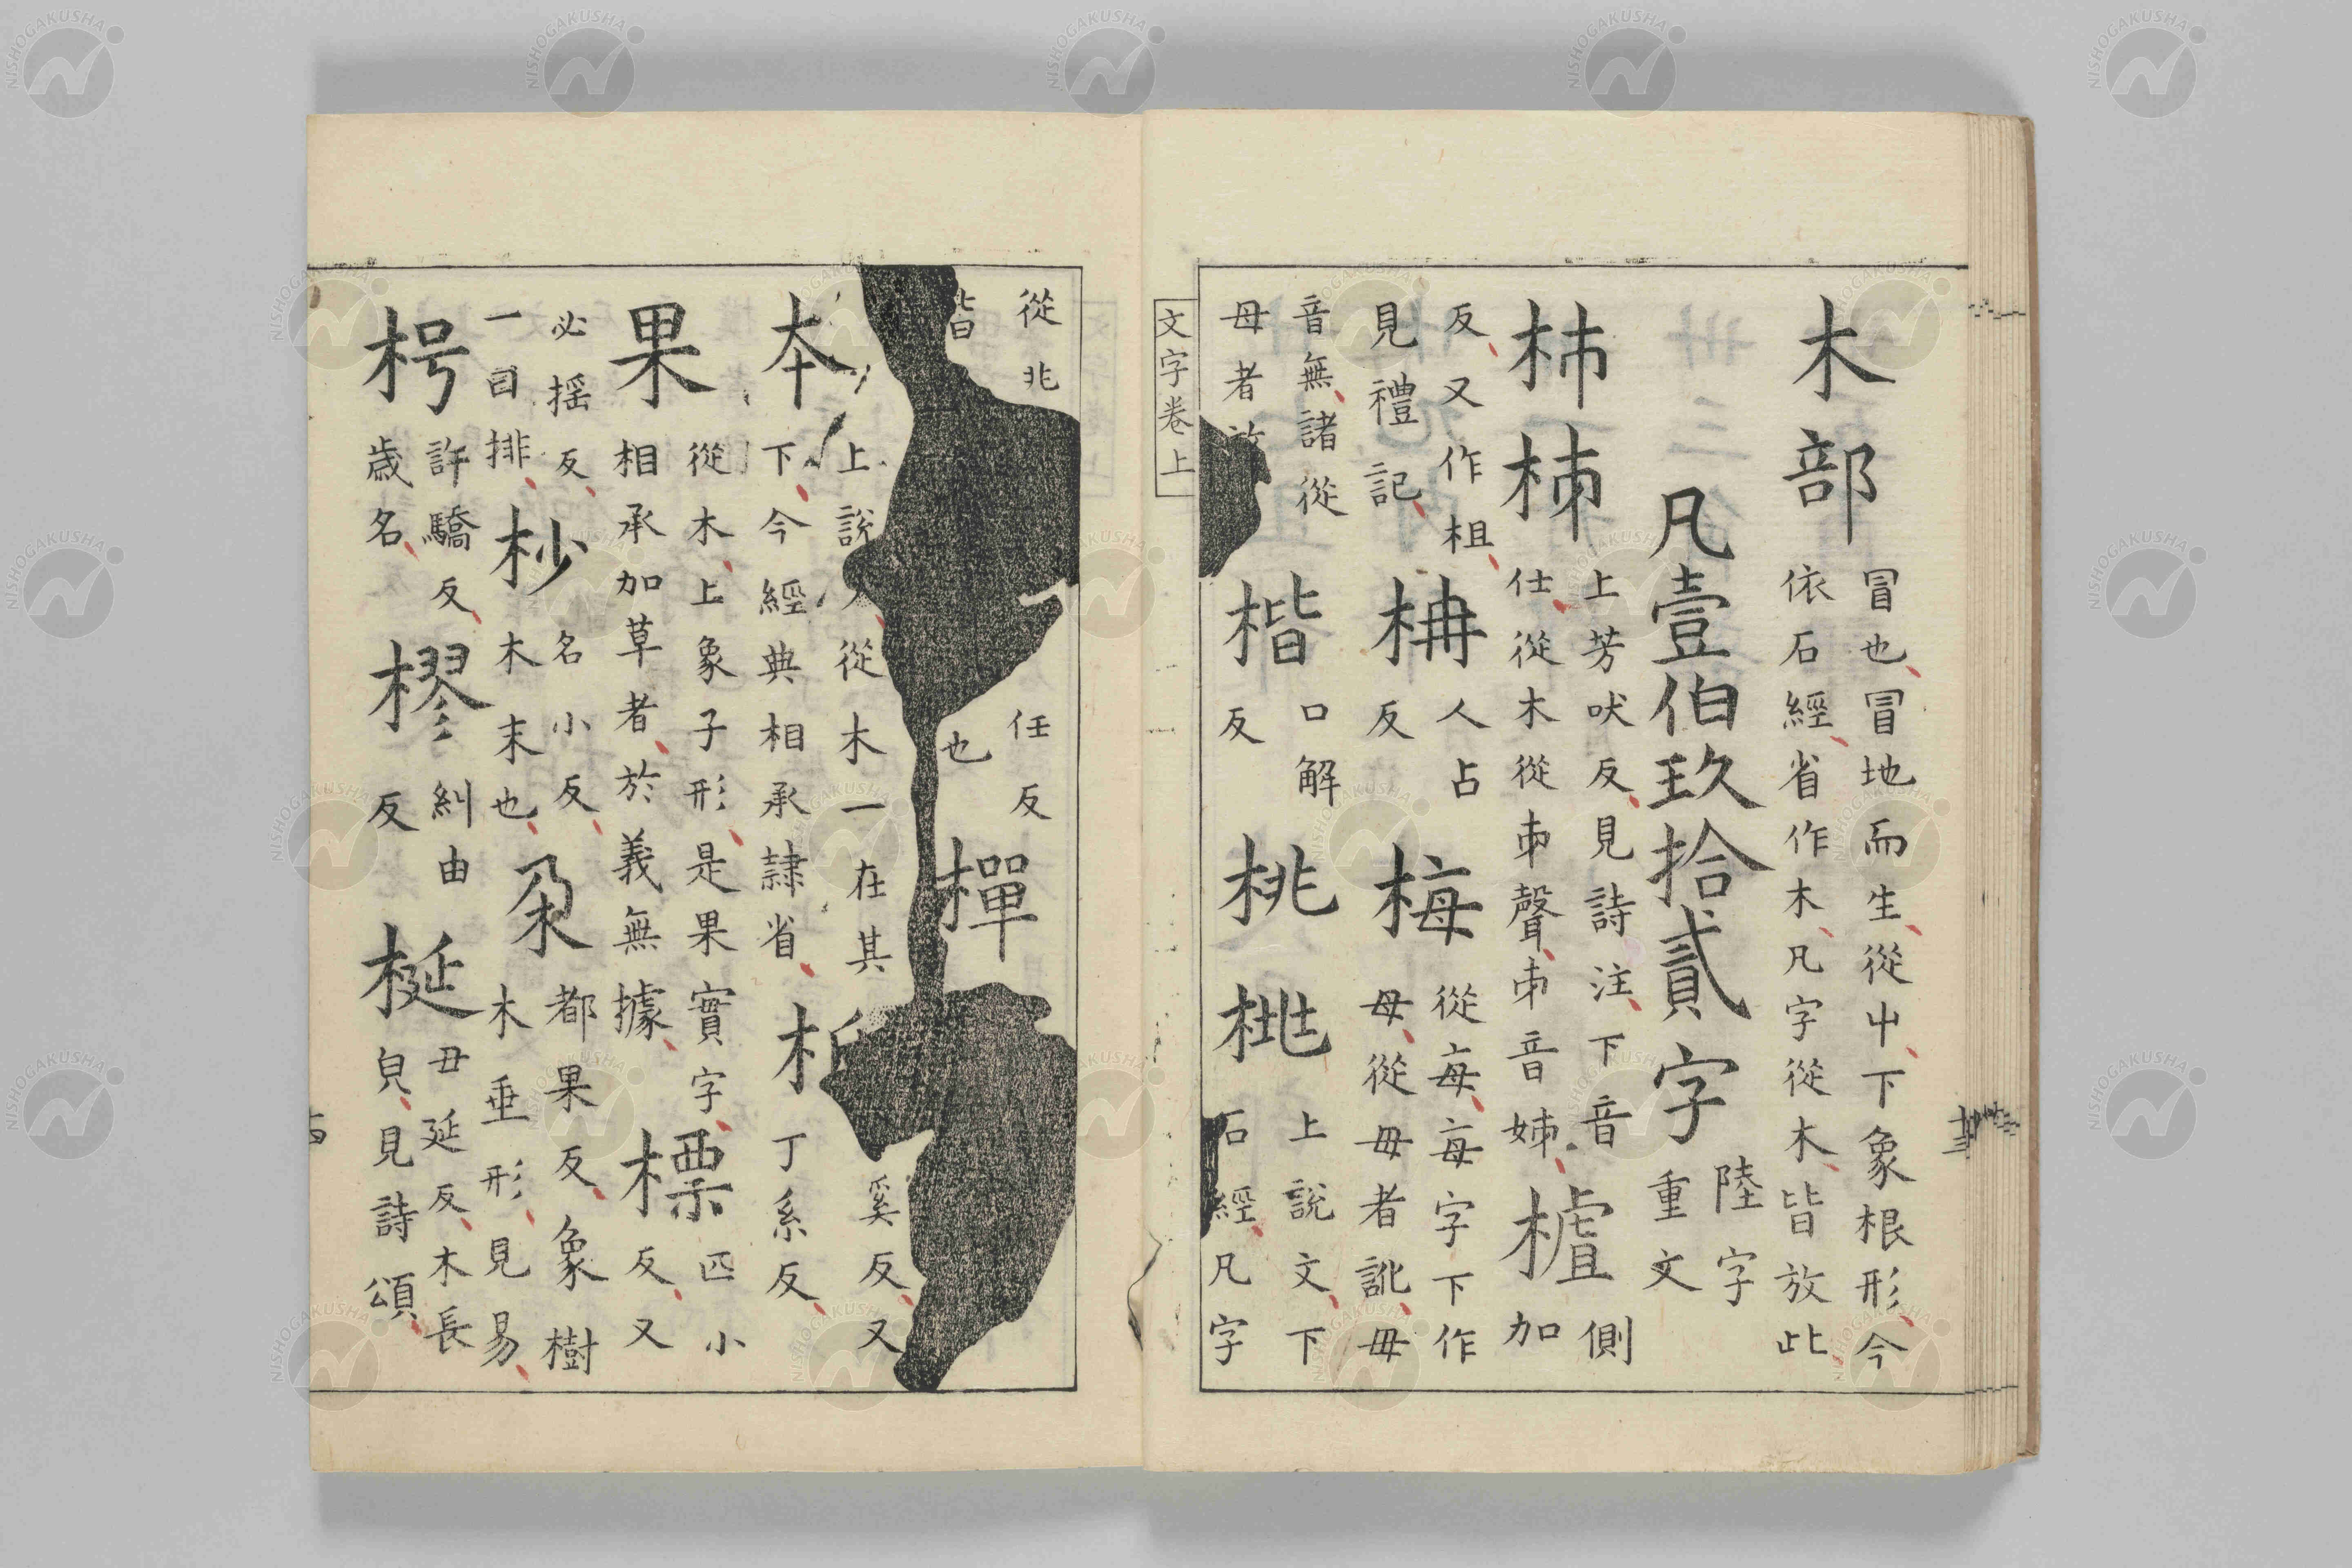 木部
冒也冒地而生從屮下象根形今
依石經省作木凡字從木皆放此
凡壹伯玖拾貳字
陸字
重文
杮柹
上芳吠反見詩注下音
仕從木從𠂔聲𠂔音姊
樝
側
加
反又作柤
見禮記
枏
人占
反
梅
從每每字下作
母從毋者訛毋
音無諸從
母者放
楷
口解
反
桃𣑯
上說文下
石經凡字
文字卷上
從兆
皆
任反
也
樿
本
上說
從木一在其
下今經典相承隸省
奚反又
丁系反
果
從木上象子形是果實字
相承加草者於義無據
標
匹小
反又
必搖反
一曰排
杪
名小反
木末也
朶
都果反象樹
木垂形見易
枵
許驕反
歲名
樛
糾由
反
梴
丑延反木長
皃見詩頌
NISHOGAKUSHA